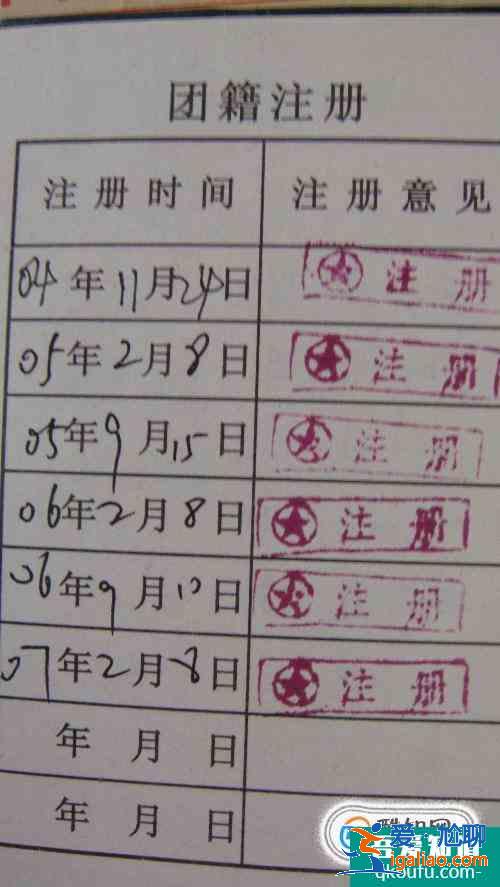 团籍注册
注册时间 注册意见
04年11月24日 注册
05年2月8日 注册
05年9月15日 注册
06年2月8日 注册
06年9月10日 注册
07年2月8日 注册
年 月 日
年 月 日
爱尬聊
igaliao.com